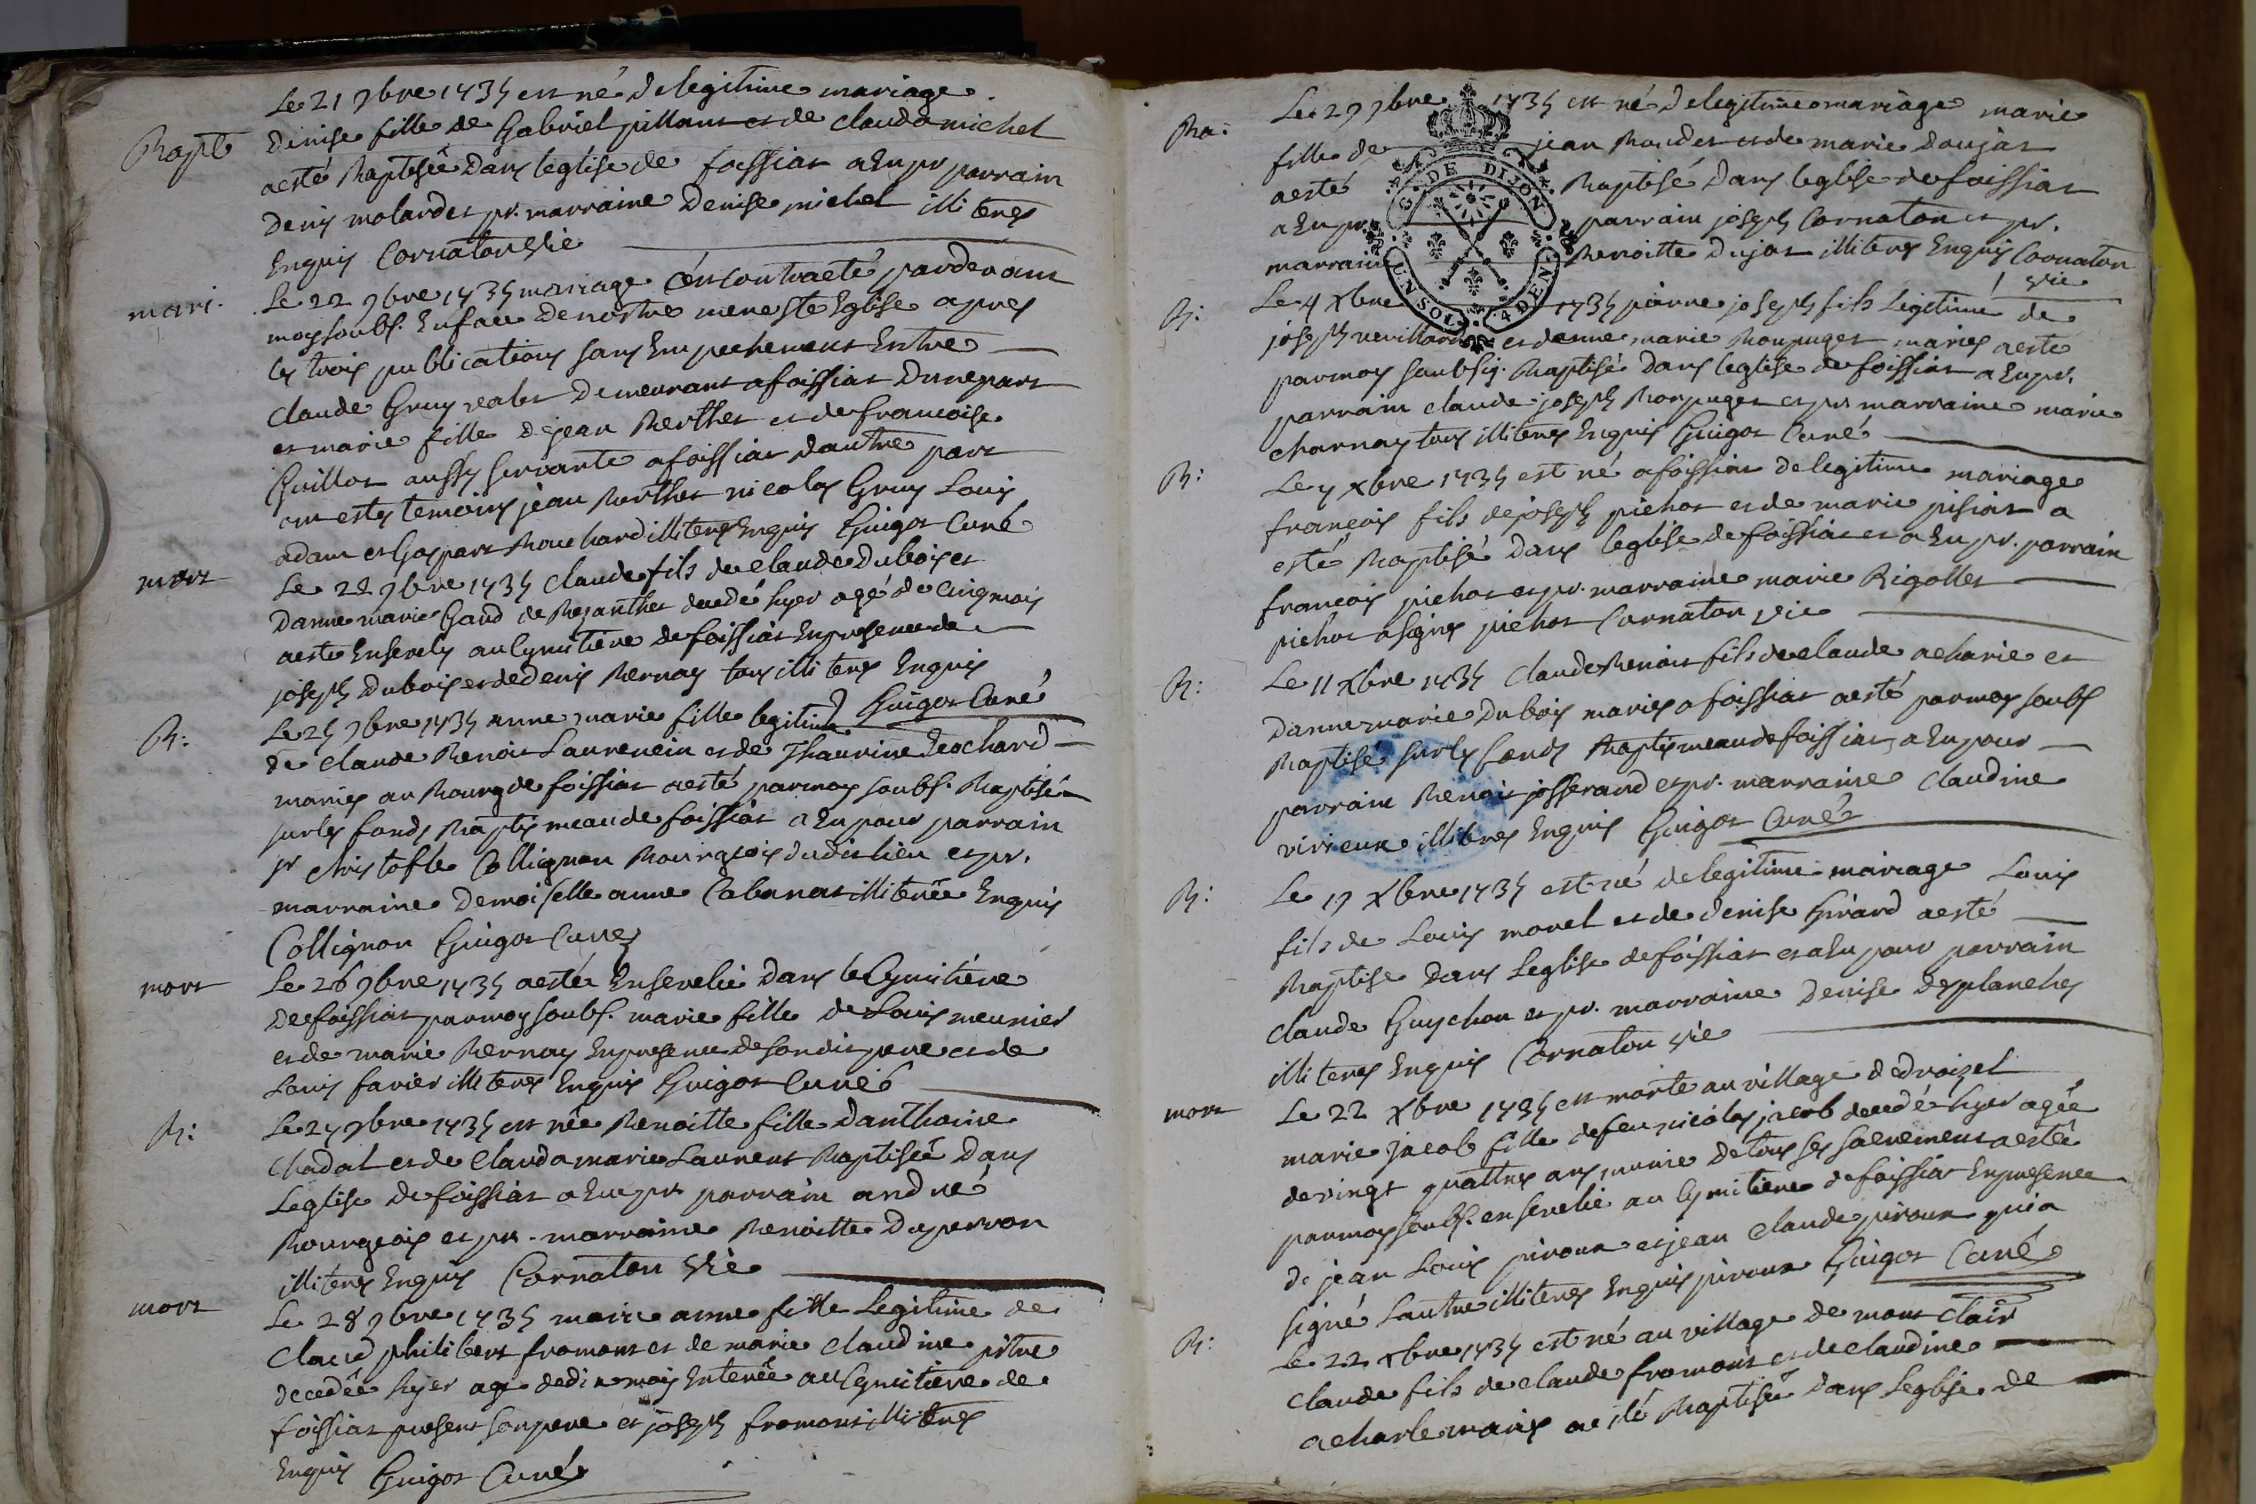 Le 21 9bre 1735 est né de legitime mariage
Bapt
Denise fille de Gabriel pillaut et de Clauda michel
aesté Baptisée Dans leglise de foissiat a Eu pr parrain
Denis molardet pr. marraine Denise michel illiterés
Enquis Cornaton Vic
mari.
Le 22 9bre 1735 mariage a été contracté pardevant
moy soubs. En face de nostre mere Ste Eglise apres
les trois publications sans Empechement Entre
Claude Gruy valet Demeurant a foissiat Dune part
et marie fille de jean Berthet et de francoise
Guillot aussy servante a foissiat Dautre part
ont estes temoins jean Berthet nicolas Gruy Louis
adam et Gaspart Bouchard illiterés Enquis Guigot Curé
mort
Le 22 9bre 1735 Claude fils de Claude Dubois et
Danne marie Gaud de decedé hyer agé de Cinq mois
aesté Ensevely au Cymitiere de foissiat En presence de
joseph Dubois et de Denis Bernay tous illiterés Enquis
Guigot Curé
B:
Le 25 9bre 1735 anne marie fille legitime
de Claude Benoit Laurencin et de Thaurine Deschard
mariés au Bourg de foissiat aesté par moy soubs. Baptisée
sur les fonds Baptismeaux de foissiat a Eu pour parrain
sr christofle Collignon Bourgeois dudit lieu et pr.
marraine Demoiselle anne Cabanat illiterée Enquis
Collignon Guigot Curé
mort
Le 26 9bre 1735 aesté Ensevelie Dans le Cymitiere
De foissiat par moy soubs. marie fille de Louis meunier
et de marie Bernay En presence de son dit pere et de
Louis favier illiterés Enquis Guigot Curé
B:
Le 27 9bre 1735 est née Benoitte fille Danthoine
Chadal et de Clauda marie Laurent Baptisée Dans
Leglise de foissiat a Eu pr parrain andré
Bourgeois et pr. marraine Benoitte Duperron
illiterés Enquis Cornaton Vic
mort
Le 28 9bre 1735 marie anne fille Legitime de
Claud philibert fromont et de marie Claudine pitre
decedée hyer agé de dix mois Enterrée au Cymitiere de
foissiat present son pere et joseph fromont illiterés
Enquis Guigot Curé
Ba:
Le 29 9bre 1735 est né de legitime mariage marie
fille de jean Baudet et de marie Doujat
aesté Baptisé Dans leglise de foissiat
a Eu pr parrain joseph Cornaton et pr.
marraine Benoitte Dujat illiterés Enquis Cornaton
Vic
G. DE DIJON
UN SOL 4 DEN
B:
Le 4 Xbre 1735 pierre joseph fils Legitime de
joseph revillard et danne marie Bonpuget mariés aesté
par moy soubsig. Baptisé Dans leglise de foissiat a Eu pr.
parrain Claude joseph Bonpuget et pr marraine marie
charnay tous illiterés Enquis Guigot Curé
B:
Le 7 Xbre 1735 est né a foissiat de legitime mariage
françois fils de joseph pichot et de marie pisiat a
esté Baptisé Dans leglise de foissiat et a Eu pr. parrain
francois pichot et pr. marraine marie Rigollet
pichot a signe pichot Cornaton Vic
B:
Le 11 Xbre 1735 Claude Benoit fils de Claude acharie et
Danne marie Dubois mariés a foissiat aesté par moy soubs
Baptisé sur les fonds Baptismeaux de foissiat, a Eu pour
parrain Benoit josserand et pr. marraine Claudine
virieux illiterés Enquis Guigot Curé
B:
Le 19 Xbre 1735 est né de legitime mariage Louis
fils de Louis morel et de Denise Girard aesté
Baptise Dans Leglise de foissiat et a Eu pour parrain
Claude Guychon et pr. marraine Denise Desplanches
illiterés Enquis Cornaton Vic
mort
Le 22 Xbre 1735 est morte au village de
marie jacob fille de feu nicolas jacob decedé hyer agée
de vingt quattres ans, munie De tous ses sacrements aestée
par moy soubs. ensevelie au Cymitiere de foissiat En presence
de jean Louis piroux et jean Claude piroux qui a
signé Lautre illiterés Enquis piroux Guigot Curé
B:
Le 22 Xbre 1735 est né au village de mont Clair
Claude fils de Claude fromont et de Claudine
acharle mariés aesté Baptisé Dans Leglise de